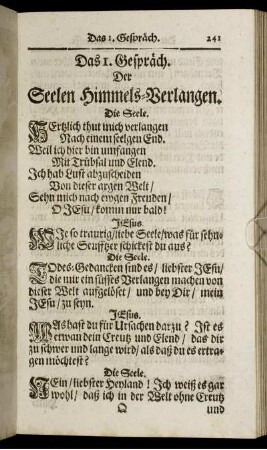 Das 1. Gespräch. 241
Das 1. Gespräch.
Der
Seelen Himmels-Verlangen.
Die Seele.
HErtzlich thut mich verlangen
Nach einem seelgen End.
Weil ich hier bin umfangen
Mit Trübsal und Elend.
Ich hab Lust abzuscheiden
Von dieser argen Welt/
Sehn mich nach ewgen Freuden/
O JEsu/ komm nur bald!
JEsus.
WIe so traurig/ liebe Seele/ was für sehn-
liche Seufftzer schickest du aus?
Die Seele.
TOdes-Gedancken sind es/ liebster JEsu/
die mir ein süsses Verlangen machen von
dieser Welt aufgelöset/ und bey Dir/ mein
JEsu/ zu seyn.
JEsus.
WAs hast du für Ursachen darzu? Ist es
etwan dein Creutz und Elend/ das dir
zu schwer und lange wird/ als daß du es ertra-
gen möchtest?
Die Seele.
NEin/ liebster Heyland! Ich weiß es gar
wohl/ daß ich in der Welt ohne Creutz
Q und